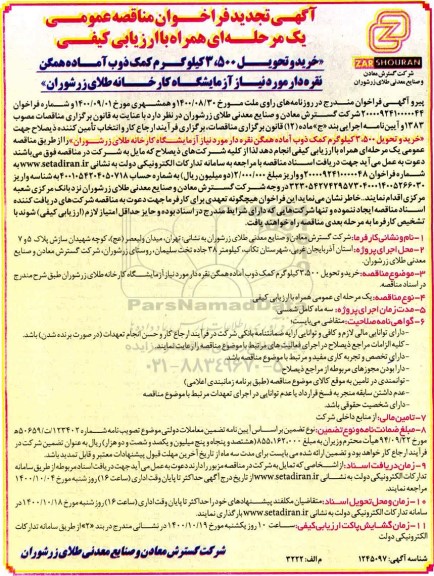 آگهی تجدید فراخوان مناقصه عمومی
یک مرحله‌ای همراه با ارزیابی کیفی
ZAR SHOURAN
شرکت گسترش معادن
و صنایع معدنی طلای زرشوران
«خرید و تحویل ۳،۵۰۰ کیلوگرم کمک ذوب آماده همگن
نقره‌دار مورد نیاز آزمایشگاه کارخانه طلای زرشوران»
پیرو آگهی فراخوان مندرج در روزنامه‌های راوی ملت مورخ ۱۴۰۰/۰۸/۳۰ و همشهری مورخ ۱۴۰۰/۰۹/۰۱ و شماره فراخوان
شرکت گسترش معادن و صنایع معدنی طلای زرشوران در نظر دارد با عنایت به قانون برگزاری مناقصات مصوب
۱۳۸۳ و آیین‌نامه اجرایی بند «ج» ماده (۱۲) قانون برگزاری مناقصات، برگزاری فرآیند ارجاع کار و انتخاب تأمین کننده ذیصلاح جهت
«خرید و تحویل ۳،۵۰۰ کیلوگرم کمک ذوب آماده همگن نقره‌دار مورد نیاز آزمایشگاه کارخانه طلای زرشوران» را از طریق مناقصه
عمومی یک مرحله‌ای همراه با ارزیابی کیفی انجام دهد لذا از کلیه شرکت‌های ذیصلاح که مایل به شرکت در مناقصه فوق می‌باشند
دعوت به عمل می‌آید جهت دریافت اسناد مناقصه با مراجعه به سامانه تدارکات الکترونیکی دولت به نشانی www.setadiran.ir به
مرکزی اقدام نمایند. خاطر نشان می‌نماید این فراخوان هیچگونه تعهدی برای کارفرما جهت دعوت به مناقصه شرکت‌های دریافت کننده
اسناد مناقصه ایجاد ننموده و تنها شرکت‌هایی که دارای شرایط مندرج در اسناد بوده و حایز حداقل امتیاز لازم (ارزیابی کیفی) شوند با
تشخیص کارفرما به مرحله بعدی مناقصه راه خواهند یافت.
۱- نام و نشانی کارفرما: شرکت گسترش معادن و صنایع معدنی طلای زرشوران به نشانی: تهران، میدان ولیعصر (عج)، کوچه شهیدان سازش پلاک ۵ و ۷
۲- محل اجرای پروژه: استان آذربایجان غربی، شهرستان تکاب، کیلومتر ۳۸ جاده تخت سلیمان، روستای زرشوران، شرکت گسترش معادن و صنایع
معدنی طلای زرشوران
۳- موضوع مناقصه: خرید و تحویل ۳،۵۰۰ کیلوگرم کمک ذوب آماده همگن نقره‌دار مورد نیاز آزمایشگاه کارخانه طلای زرشوران طبق شرح مندرج
در اسناد مناقصه.
۴- نوع مناقصه: یک مرحله ای عمومی همراه با ارزیابی کیفی
۵- مدت زمان اجرای پروژه: سه ماه کامل شمسی
۶- گواهی نامه صلاحیت: متقاضی می‌بایست:
- دارای توانایی مالی لازم و کافی و توانایی ارایه ضمانتنامه بانکی شرکت در فرآیند ارجاع کار و حسن انجام تعهدات (در صورت برنده شدن) باشد.
- کلیه الزامات مراجع ذیصلاح در اجرای فعالیت‌های مرتبط با موضوع مناقصه را رعایت نمایند.
- دارای تخصص و تجربه کاری مفید و مرتبط با موضوع مناقصه باشد.
- دارا بودن مجوزهای مربوطه از مراجع ذیصلاح
- توانمندی در تامین به موقع کالای موضوع مناقصه (طبق برنامه زمانبندی اعلامی)
- عدم داشتن سابقه منجر به فسخ قرارداد یا عدم توانایی در اجرای تعهدات مرتبط با موضوع مناقصه
- دارای شخصیت حقوقی باشد.
۷- تامین مالی: از منابع داخلی شرکت
۸- مبلغ ضمانت نامه و نوع تضمین: نوع تضمین بر اساس آیین نامه تضمین معاملات دولتی موضوع تصویب نامه شماره ۱۲۳۴۰۲/ت۵۰۶۵۹ه
مورخ ۹۴/۰۹/۲۲ هیأت محترم وزیران به مبلغ ۸۵۵،۱۶۲،۰۰۰ (هشتصد و پنجاه و پنج میلیون و یکصد و شصت و دو هزار) ریال به عنوان تضمین شرکت در
فرآیند ارجاع کار خواهد بود و تضمین ارائه شده می بایست برای مدت سه ماه از تاریخ آخرین مهلت قبول پیشنهادات معتبر و قابل تمدید باشد.
۹- زمان دریافت اسناد: از اشخاصی که تمایل به شرکت در مناقصه مزبور را دارند دعوت به عمل می‌آید جهت دریافت اسناد مربوطه از طریق سامانه
تدارکات الکترونیکی دولت به نشانی www.setadiran.ir از تاریخ درج آگهی حداکثر تا پایان وقت اداری (ساعت ۱۶) روز شنبه مورخ ۱۴۰۰/۱۰/۰۴
مراجعه نمایند.
۱۰- زمان و محل تحویل اسناد: متقاضیان مکلفند پیشنهادهای خود را حداکثر تا پایان وقت اداری (ساعت ۱۶) روز شنبه مورخ ۱۴۰۰/۱۰/۱۸ در
سامانه تدارکات الکترونیکی دولت به نشانی www.setadiran.ir بارگذاری نمایند.
۱۱- زمان گشایش پاکت ارزیابی کیفی: ساعت ۱۰ روز یکشنبه مورخ ۱۴۰۰/۱۰/۱۹ در نشانی مندرج در بند «۲» از طریق سامانه تدارکات
الکترونیکی دولت می باشد.
شناسه آگهی: ۱۲۴۵۰۹۷
م الف: ۳۲۲۲
شرکت گسترش معادن و صنایع معدنی طلای زرشوران
ParsNamadData
۰۲۱-۸۸۳۴۹۶۷۰-۵